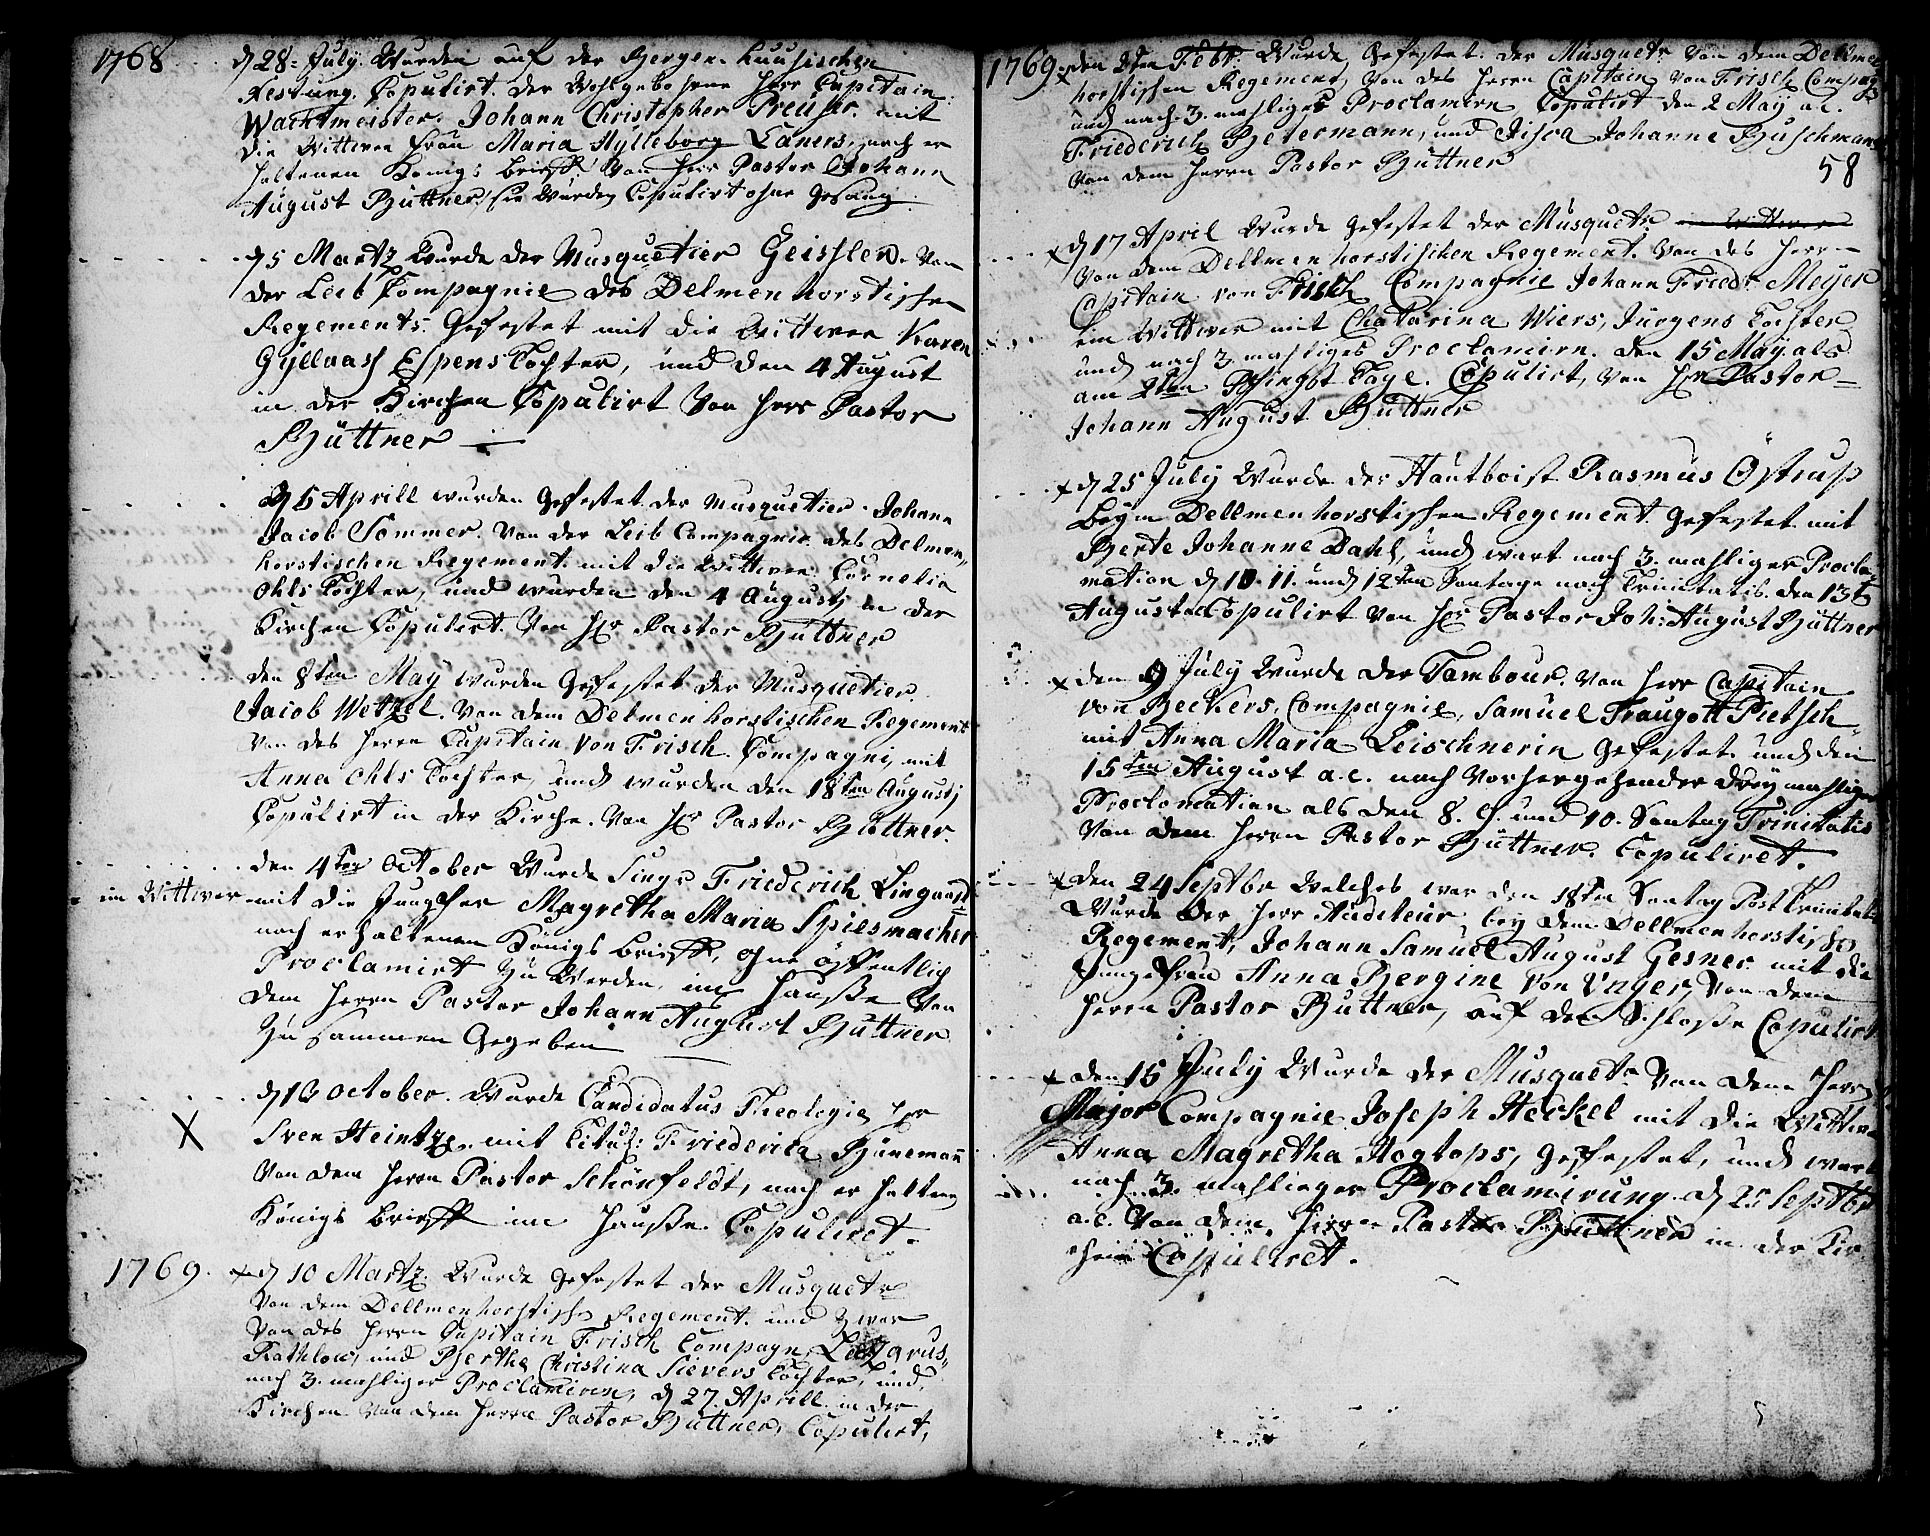 1768
d 28. July. Wurden auf der Bergen-Huusischen
Festung. Copulirt. der Wohlgebohrne Herr Capitain
Wachtmeister. Johann Christopher Preuser. mit
die Wittwee Frau Maria Hylleborg Laners, nach er
haltenen Königs Brieff. Von Herr Pastor Johann
August Büttner, sie Wurden Copulirt ohne Gesang.
d 5 Martz Wurde der Musquetier Geissler. Von
der Leib Compagnie des Delmenhorstischen
Regements. Gefestet mit die Wittwee Karen
Gyllaasf Espens Tochter, und den 4 August
in der Kirchen Copulirt Von Herr Pastor
Büttner
d 6 Aprill wurden Gefestet der Musquetier. Johann
Jacob Sommer. Von der Leib Compagnie des Delmen-
horstischen Regement. mit die Wittwee. Cornelia
Ohls Tochter, und wurden den 4 Augustj in der
Kirchen Copulirt. Von Hr Pastor Büttner
den 8ten May wurden Gefestet der Musquetier
Jacob Wetzel. Von dem Delmenhorstischen Regement
Von des Herrn Capitain Von Frisch. Compagni, mit
Anna Ohls Tochter, und wurden den 18ten Augustj
Copulirt in der Kirche. Von Hr Pastor Büttner.
den 4ten October Wurde Friederich Lingaard
ein Wittwer mit die Jungfer Magretha Maria Spiesmacher
nach erhaltenen Königs Brieff, ohne öffentlich
Proclamirt zu Werden, im Hausse Von
dem Herrn Pastor Johann August Büttner
zusammen Gegeben
d 10 October. Wurde Candidatus Theologie Hr
X Sven Heintze. mit Friederica Bünemann
Von dem Herrn Pastor Schönfeldt, nach erhalten
Königs Brieff im Hausse Copuliret.
1769. x d 10 Martz. Wurde Gefestet der Musquetr
Von dem Dellmenhorstische Regement. und zwar
Von des Herrn Capitain Frisch Compagn, Lazarus
Rathlow, und Berthe Christina Sievers Tochter, und
nach 3. mahliger Proclamiren, d 27. Aprill in der
Kirchen Von dem Herrn Pastor Büttner, Copulirt,
1769 x den 2ten Febr. Wurde Gefestet der Musquetr. Von dem Dellmen
horstischen Regement, Von des Herrn Capitain Von Frisch Compag
und nach 3. mahliges Proclamirn Copulirt den 2 May a.c.
Friederich Betermann, und Johanne Buschmann
Von dem Herrn Pastor Büttner
58
x d 17 April Wurde Gefestet der Musquetr. Wittwer
Von dem Dellmenhorstischen Regement. Von des Herrn
Capitain von Frisch Compagnie Johann Friedr. Meyer
ein Wittwer mit Chatarina Wiers, Jürgens Tochter
und nach 3. mahliges Proclamirn. den 15 May als
am 2ten Pfingst Tage. Copulirt, Von Hr Pastor
Johann August Büttner
x d 25 July Wurde der Hautboist Rasmus Östrup
beym Dellmenhorstischen Regement Gefestet mit
Berte Johanne Dahl, und wart nach 3. mahliger Procla
mation d 10. 11. und 12ten Sontage nach Trinitatis. den 13t
Augusta Copulirt Von Hr Pastor Joh: August Büttner
x den 9 July Wurde der Tambour. Von Herr Capitain
von Beckers, Compagnie, Samuel Traugott Pietsch
mit Anna Maria Leischnerin Gefestet und den
15ten August a.c. nach Vorhergehender dreymahliger
Proclomation als den 8. 9. und 10. Sontag Trinitatis
Von dem Herrn Pastor Büttner. Copuliret.
x den 24 Septbr Welches war den 18ten Sontag Post Trinitatis
Wurde der Herr Auditeur bey dem Dellmenhorstische
Regement, Johann Samuel August Gesner mit die
Jungefrau Anna Bergine Von Unger, Von dem
Herrn Pastor Büttner, auf der Schlosse Copulirt
x den 15 July Wurde der Musquetr Von dem Herrn
Major Compagnie Joseph Heckel mit die Wittwe
Anna Magretha Hogtops, Gefestet, und wart
nach 3 mahlieger Proclamirung d 25 Septbr
a.c. Von dem Herrn Pastor Büttner in der Kir
chen Copuliret.